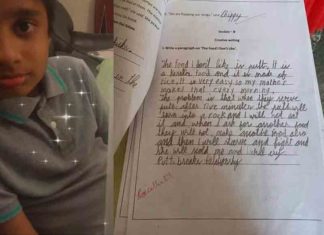 "We are flapping our wings," said Chippy
Section - D
Creative writing
1. Write a paragraph on 'The food I don't like.
The food I don't like is putt. It is
a food and it is made of
rice. It is very easy so my mother
makes that every morning.
The problem is that when they serve
putt after five minutes the putt will
turn into a rock and I will not eat
it and when I ask for another food
they will not make another food also
and then I will starve and fight and
she will scold me and I will cry
Putt breaks
Excellent